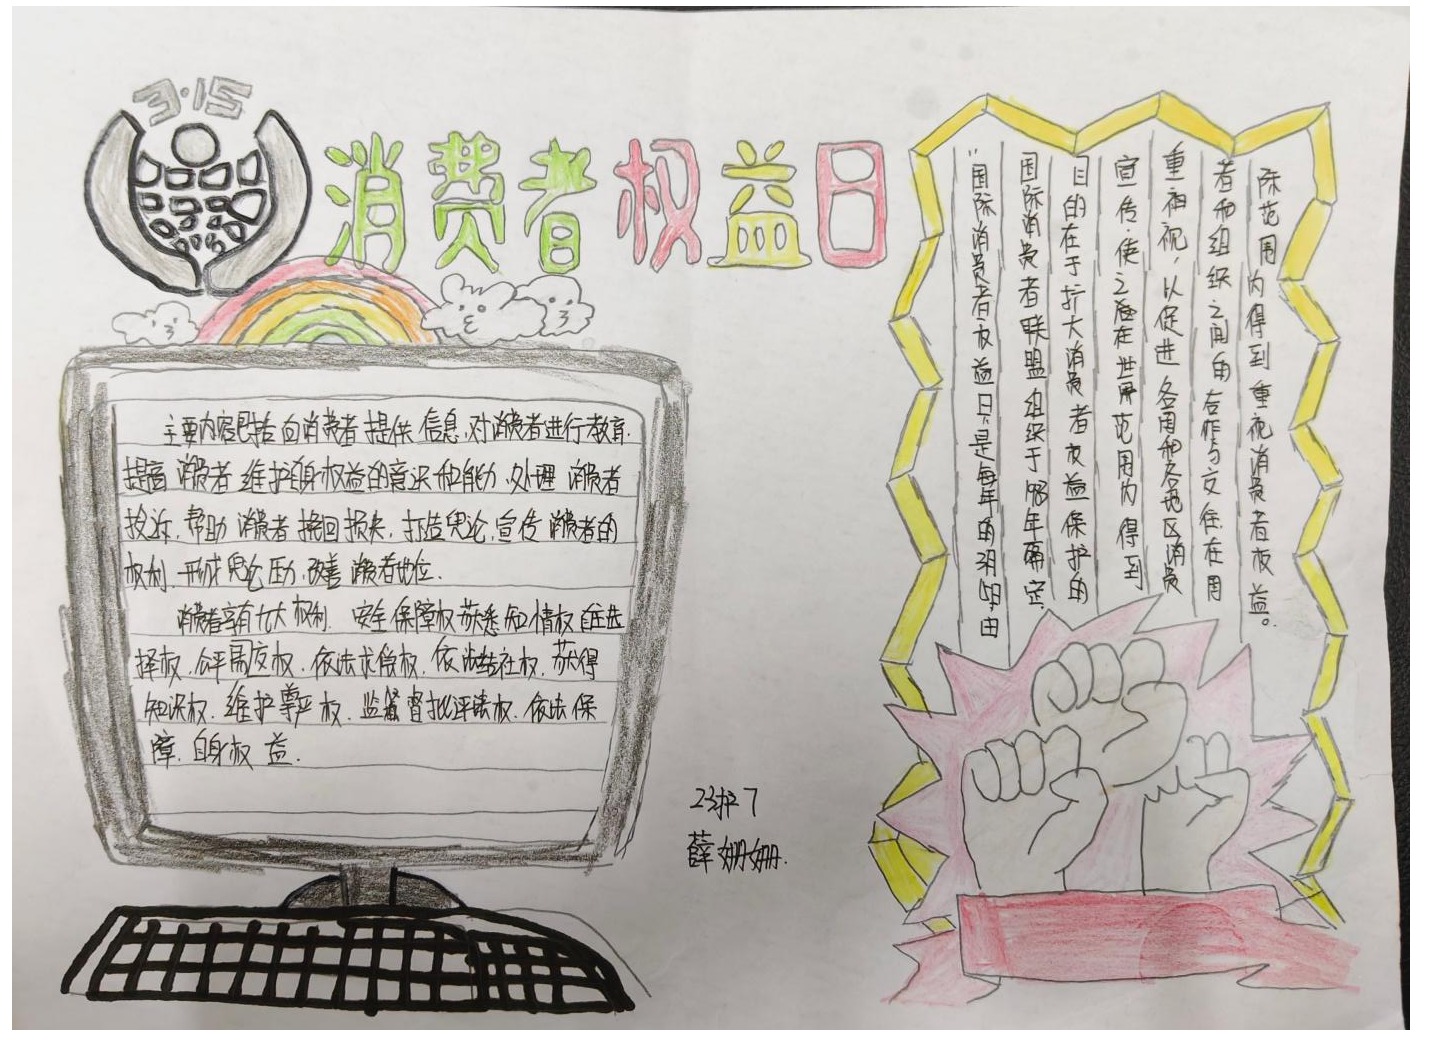 3·15
消费者权益日
主要内容包括向消费者提供信息,对消费者进行教育.
提高消费者维护自身权益的意识和能力、处理消费者
投诉.帮助消费者挽回损失.打造舆论,宣传消费者的
权利.形成舆论压力、改善消费者地位.
消费者享有九大权利.安全保障权获悉知情权自主选
择权.公平易交权.依法求偿权.依法结社权.获得
知识权.维护尊严权.监督批评权.依法保
障.自身权益.
"国际消费者权益日"是每年的3月15日,由
国际消费者联盟组织于1983年确定.
目的在于扩大消费者权益保护的
宣传.使之在世界范围内得到
重视,以促进各国和各地区消费
者和组织之间的合作与交往.在国
际范围内得到重视消费者权益。
23护7
薛姗姗.